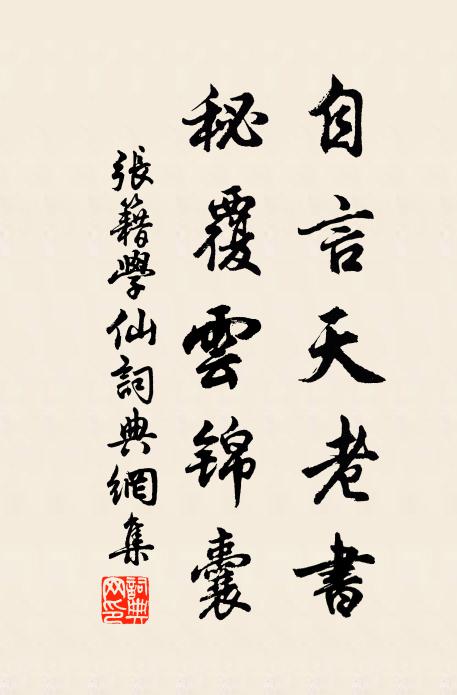 自言天老書
秘覆雲錦囊
張籍學仙詞典網集
詞典网印